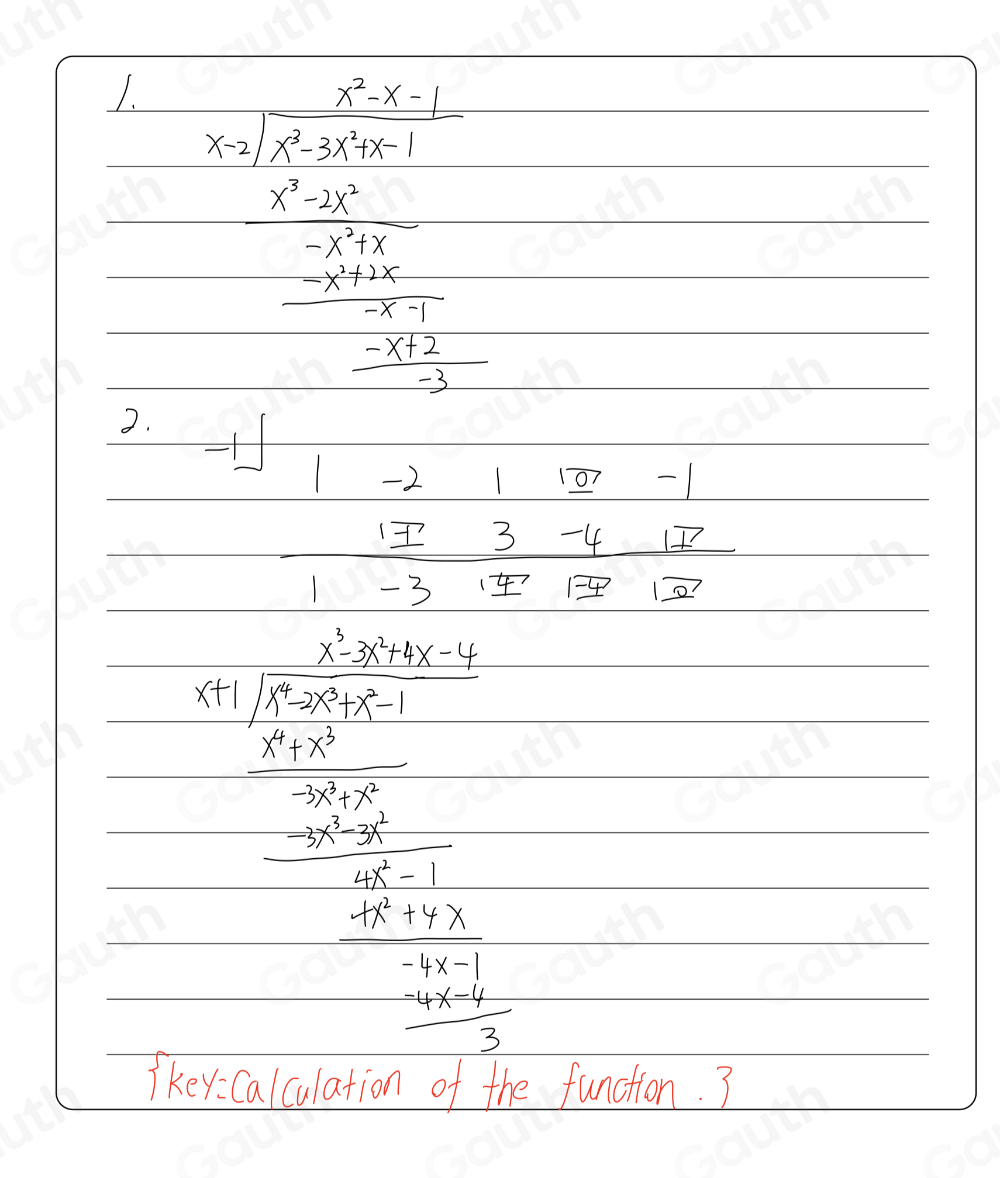 1.
x²-x-1
x-2 x³-3x²+x-1
x³-2x²
-x²+x
-x²+2x
-x-1
-x+2
-3
2.
-1
1 -2 1 0 -1
3 -4
1 -3 4 -4
x³-3x²+4x-4
x+1 x⁴-2x³+x²-1
x⁴+x³
-3x³+x²
-3x³-3x²
4x²-1
4x²+4x
-4x-1
-4x-4
3
{key=Calculation of the function.}